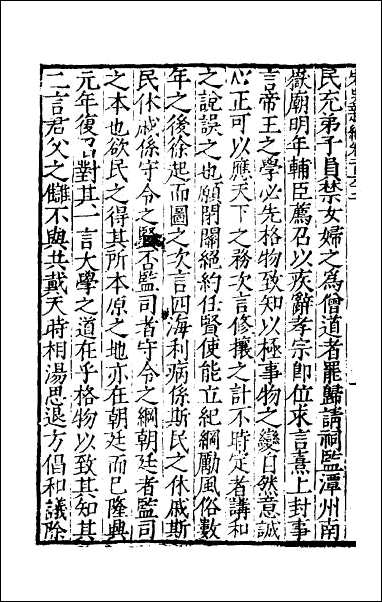 民充弟子員禁女婦之為僧道者罷歸請祠監潭州南
嶽廟明年輔臣薦召以疾辭孝宗即位求言熹上封事
言帝王之學必先格物致知以極事物之變自然意誠
心正可以應天下之務次言修攘之計不時定者講和
之說誤之也願閉關絕約任賢使能立紀綱勵風俗數
年之後徐起而圖之次言四海利病係斯民之休戚斯
民休戚係守令之賢不監司者守令之綱朝廷者監司
之本也欲民之得其所本原之地亦在朝廷而巳隆興
元年復召對其一言大學之道在乎格物以致其知其
二言君父之讎不與共戴天時相湯思退方倡和議除